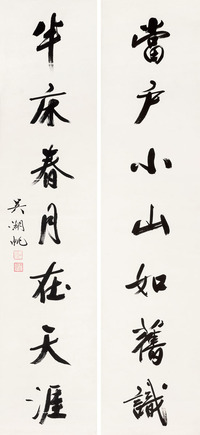 當戶小山如舊識
半床春月在天涯
吳湖帆